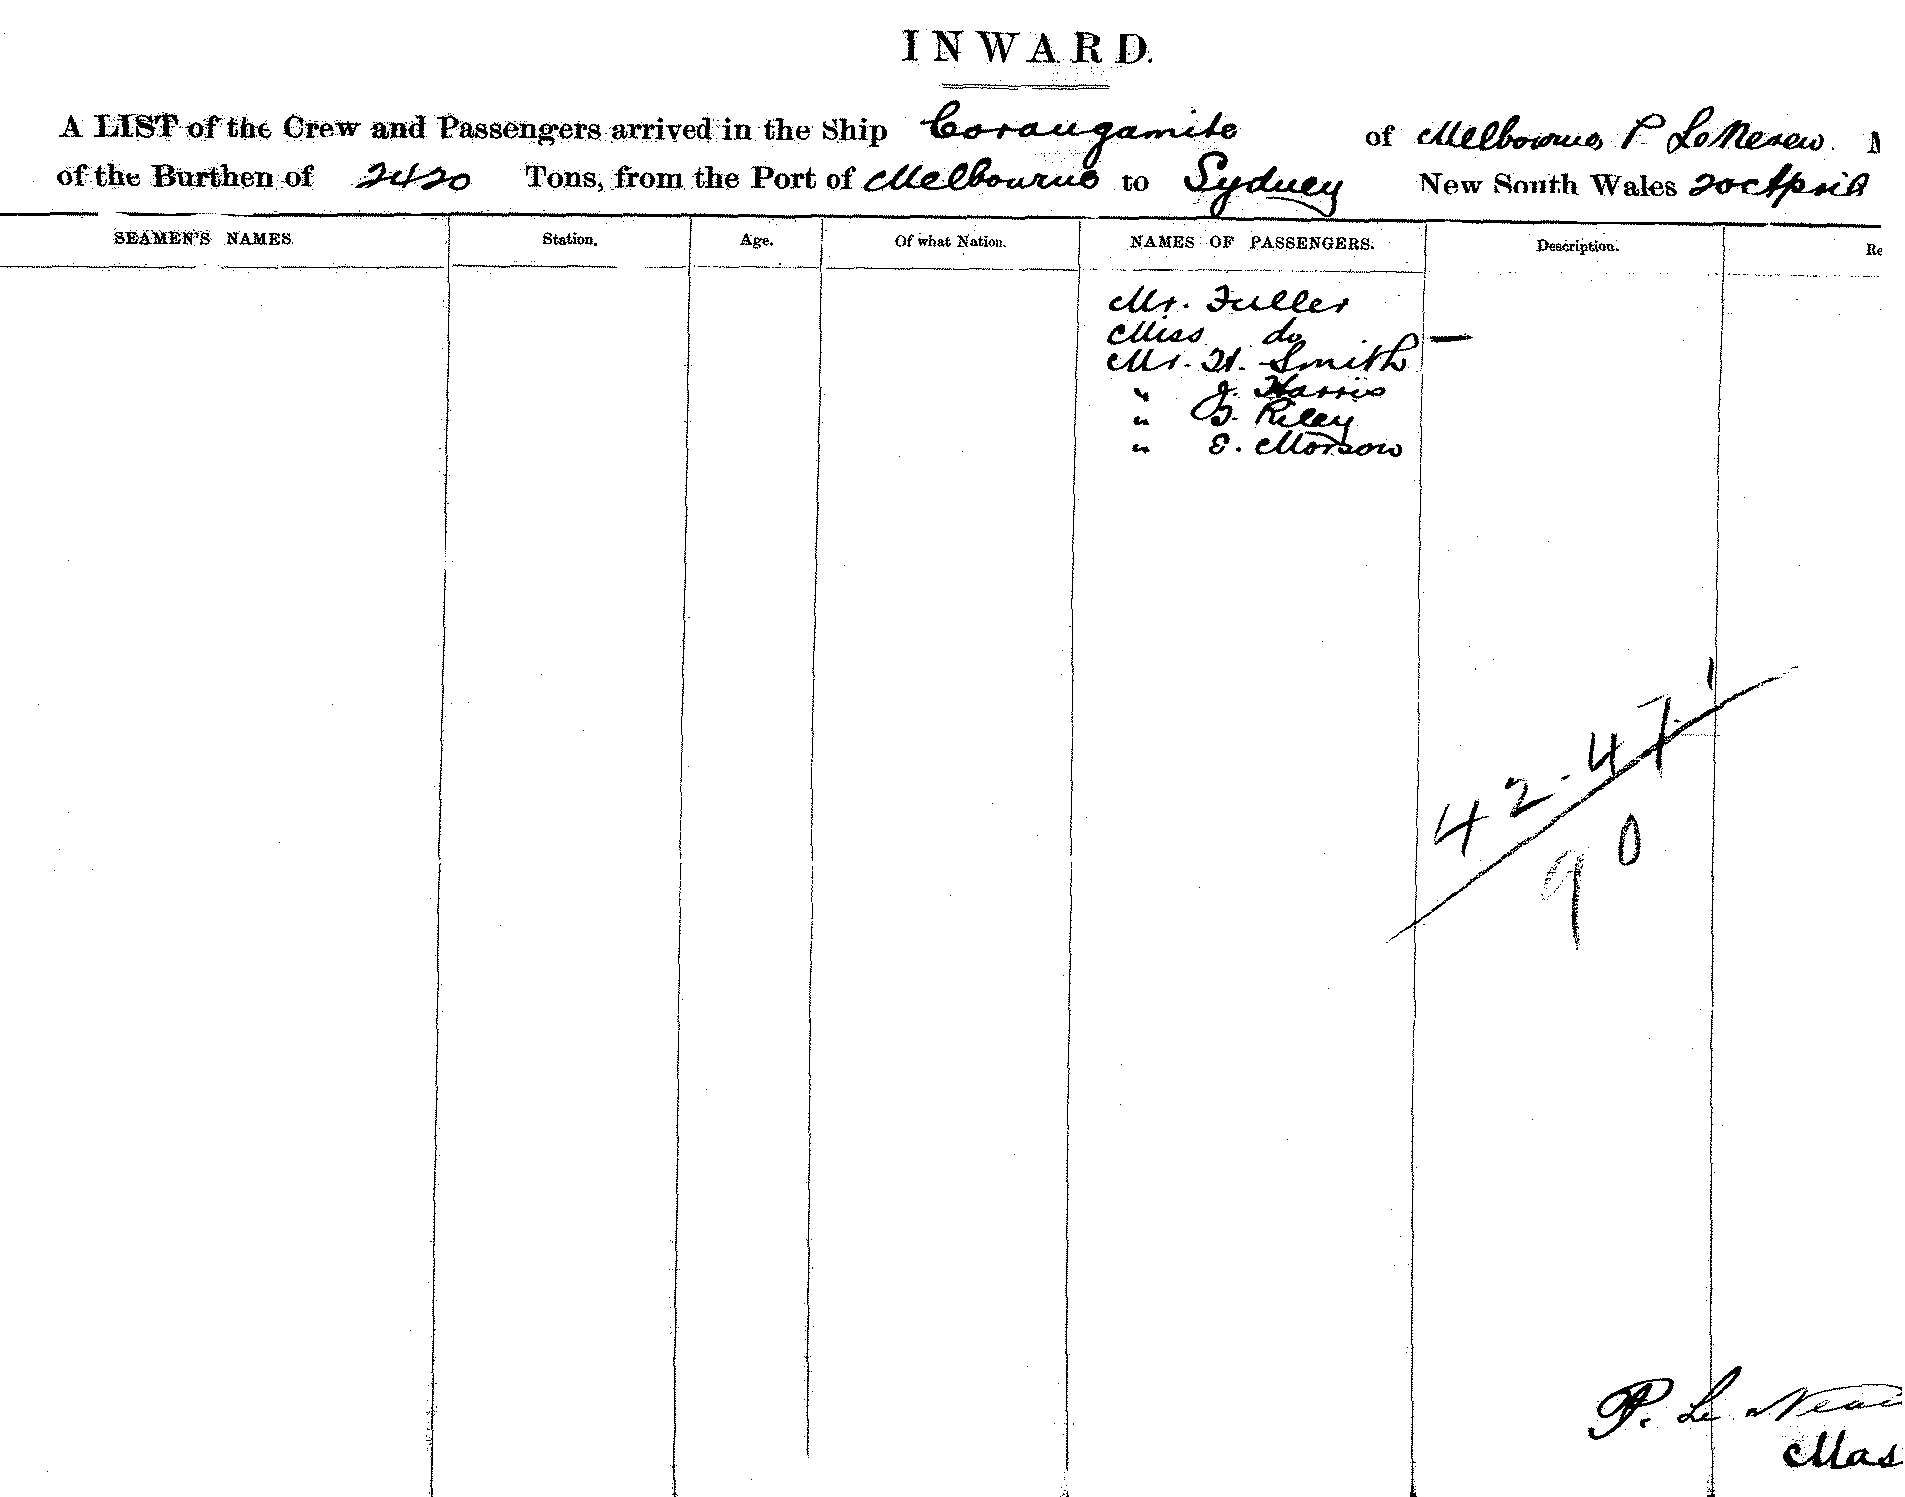 INWARD.
A LIST of the Crew and Passengers arrived in the Ship Corangamite of Melbourne P Le Neveu.
of the Burthen of 2420 Tons, from the Port of Melbourne to Sydney New South Wales 20c April
SEAMEN'S NAMES. Station. Age. Of what Nation. NAMES OF PASSENGERS. Description. Re
Mr. Fuller
Miss do —
Mr. H. Smith
" J. Harris
" G. Riley
" E. Morson
42.47.1
90
P. Le Neve
Mas